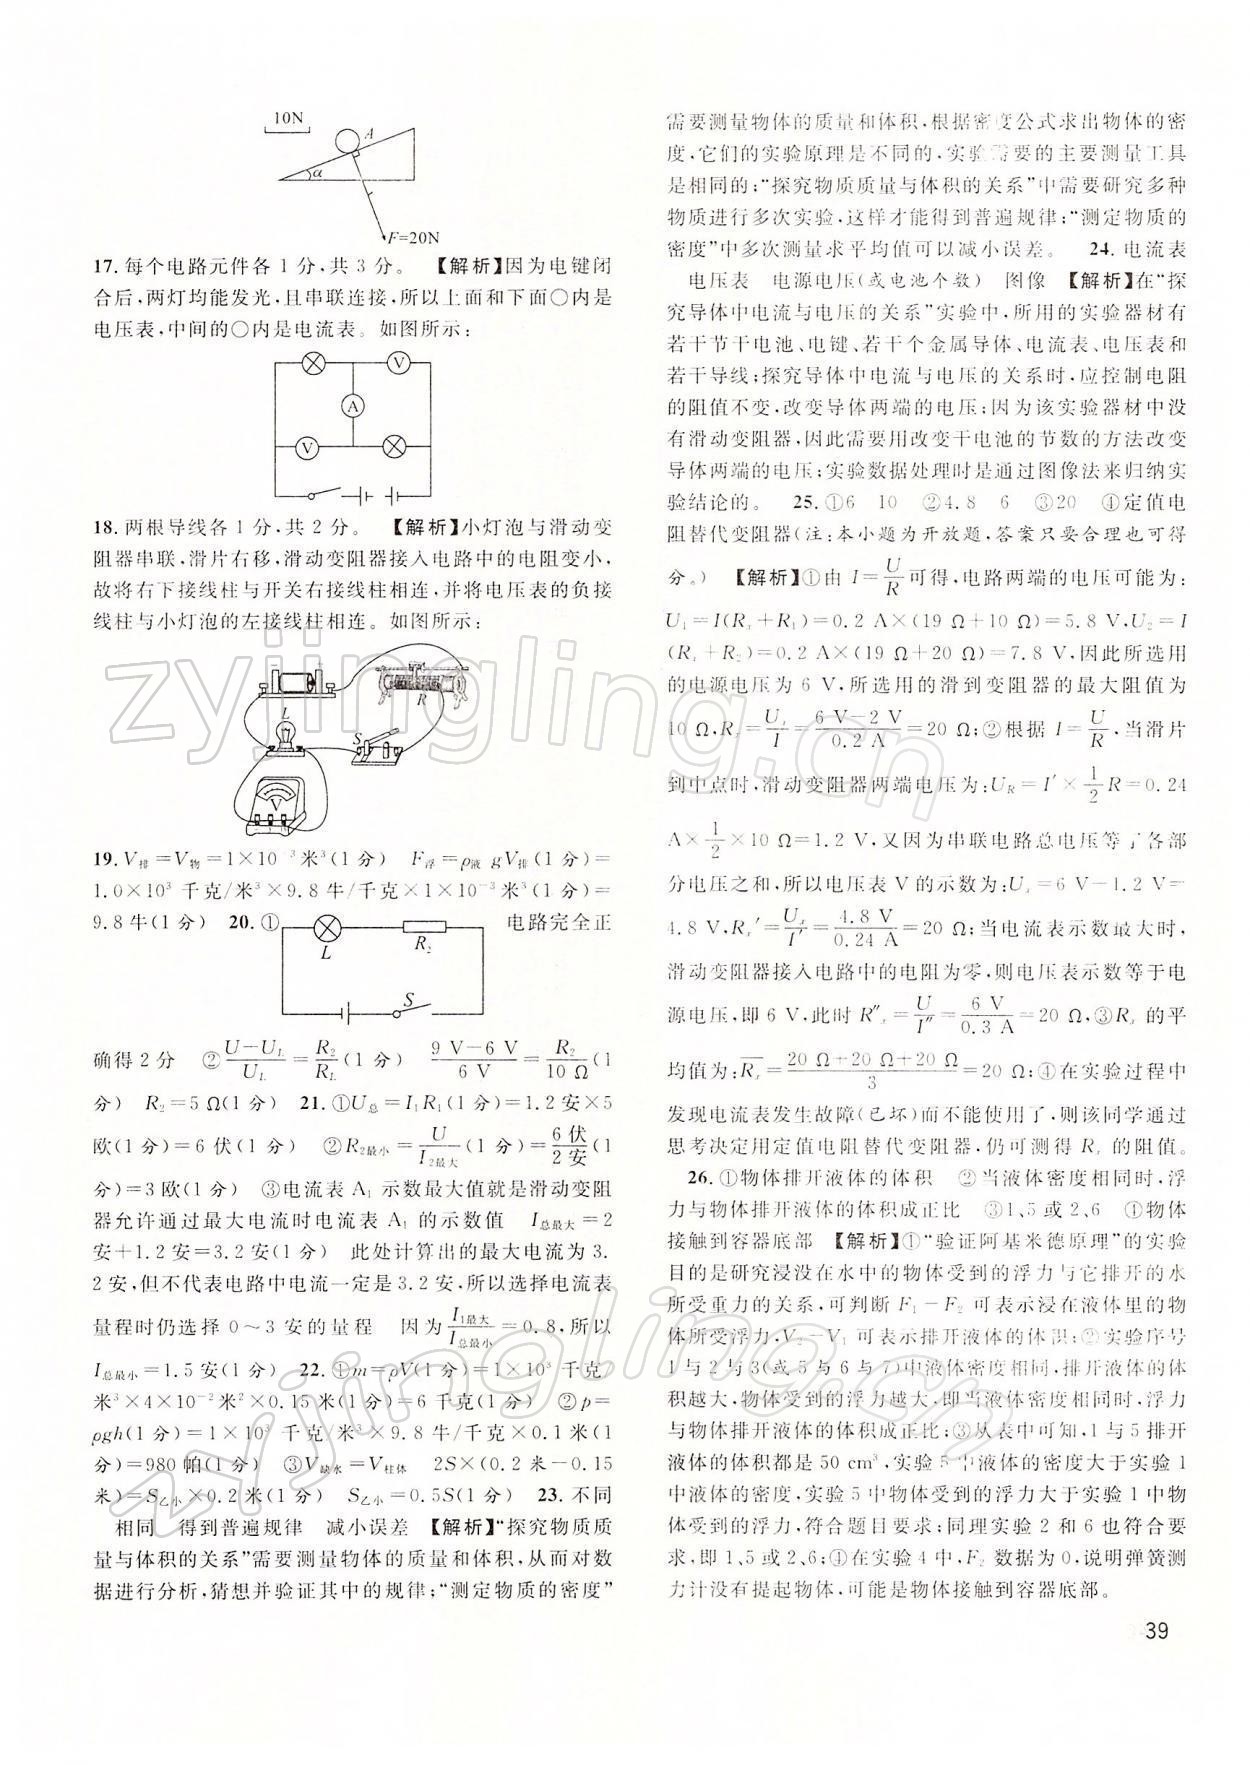 10N
A
α
F=20N
17. 每个电路元件各1分,共3分。 【解析】因为电键闭
合后,两灯均能发光,且串联连接,所以上面和下面○内是
电压表,中间的○内是电流表。如图所示:
V
A
V
18. 两根导线各1分,共2分。 【解析】小灯泡与滑动变
阻器串联,滑片右移,滑动变阻器接入电路中的电阻变小,
故将右下接线柱与开关右接线柱相连,并将电压表的负接
线柱与小灯泡的左接线柱相连。如图所示:
R
L
S
V
19. V排=V物=1×10⁻³米³(1分) F浮=ρ液gV排(1分)=
1.0×10³千克/米³×9.8牛/千克×1×10⁻³米³(1分)=
9.8牛(1分) 20. ① 电路完全正
L R₂
S
确得2分 ②(U−U_L)/U_L=R₂/R_L(1分) (9 V−6 V)/6 V=R₂/10 Ω(1
分) R₂=5 Ω(1分) 21. ①U总=I₁R₁(1分)=1.2安×5
欧(1分)=6伏(1分) ②R₂最小=U/I₂最大(1分)=6伏/2安(1
分)=3欧(1分) ③电流表A₁示数最大值就是滑动变阻
器允许通过最大电流时电流表A₁的示数值 I总最大=2
安+1.2安=3.2安(1分) 此处计算出的最大电流为3.
2安,但不代表电路中电流一定是3.2安,所以选择电流表
量程时仍选择0~3安的量程 因为I₁最大/I总最小=0.8,所以
I总最小=1.5安(1分) 22. ①m=ρV(1分)=1×10³千克/
米³×4×10⁻²米²×0.15米(1分)=6千克(1分) ②p=
ρgh(1分)=1×10³千克/米³×9.8牛/千克×0.1米(1
分)=980帕(1分) ③V缺水=V柱体 2S×(0.2米−0.15
米)=S乙小×0.2米(1分) S乙小=0.5S(1分) 23. 不同
相同 得到普遍规律 减小误差 【解析】“探究物质质
量与体积的关系”需要测量物体的质量和体积,从而对数
据进行分析,猜想并验证其中的规律;“测定物质的密度”
需要测量物体的质量和体积,根据密度公式求出物体的密
度,它们的实验原理是不同的,实验需要的主要测量工具
是相同的;“探究物质质量与体积的关系”中需要研究多种
物质进行多次实验,这样才能得到普遍规律;“测定物质的
密度”中多次测量求平均值可以减小误差。 24. 电流表
电压表 电源电压(或电池个数) 图像 【解析】在“探
究导体中电流与电压的关系”实验中,所用的实验器材有
若干节干电池、电键、若干个金属导体、电流表、电压表和
若干导线;探究导体中电流与电压的关系时,应控制电阻
的阻值不变,改变导体两端的电压;因为该实验器材中没
有滑动变阻器,因此需要用改变干电池的节数的方法改变
导体两端的电压;实验数据处理时是通过图像法来归纳实
验结论的。 25. ①6 10 ②4.8 6 ③20 ④定值电
阻替代变阻器(注:本小题为开放题,答案只要合理也可得
分。) 【解析】①由I=U/R可得,电路两端的电压可能为:
U₁=I(Rₓ+R₁)=0.2 A×(19 Ω+10 Ω)=5.8 V,U₂=I
(Rₓ+R₂)=0.2 A×(19 Ω+20 Ω)=7.8 V,因此所选用
的电源电压为6 V,所选用的滑到变阻器的最大阻值为
10 Ω,Rₓ=Uₓ/I=(6 V−2 V)/0.2 A=20 Ω;②根据I=U/R,当滑片
到中点时,滑动变阻器两端电压为:U_R=I′×1/2R=0.24
A×1/2×10 Ω=1.2 V,又因为串联电路总电压等于各部
分电压之和,所以电压表V的示数为:Uₓ=6 V−1.2 V=
4.8 V,Rₓ′=Uₓ/I′=4.8 V/0.24 A=20 Ω;当电流表示数最大时,
滑动变阻器接入电路中的电阻为零,则电压表示数等于电
源电压,即6 V,此时R″ₓ=U/I″=6 V/0.3 A=20 Ω,③Rₓ的平
均值为:R̅ₓ=(20 Ω+20 Ω+20 Ω)/3=20 Ω;④在实验过程中
发现电流表发生故障(已坏)而不能使用了,则该同学通过
思考决定用定值电阻替代变阻器,仍可测得Rₓ的阻值。
26. ①物体排开液体的体积 ②当液体密度相同时,浮
力与物体排开液体的体积成正比 ③1、5或2、6 ④物体
接触到容器底部 【解析】①“验证阿基米德原理”的实验
目的是研究浸没在水中的物体受到的浮力与它排开的水
所受重力的关系,可判断F₁−F₂可表示浸在液体里的物
体所受浮力,V₂−V₁可表示排开液体的体积;②实验序号
1与2与3(或5与6与7)中液体密度相同,排开液体的体
积越大,物体受到的浮力越大,即当液体密度相同时,浮力
与物体排开液体的体积成正比;③从表中可知,1与5排开
液体的体积都是50 cm³,实验5中液体的密度大于实验1
中液体的密度,实验5中物体受到的浮力大于实验1中物
体受到的浮力,符合题目要求;同理实验2和6也符合要
求,即1、5或2、6;④在实验4中,F₂数据为0,说明弹簧测
力计没有提起物体,可能是物体接触到容器底部。
39
zyjingling.cn
zyjingling.cn